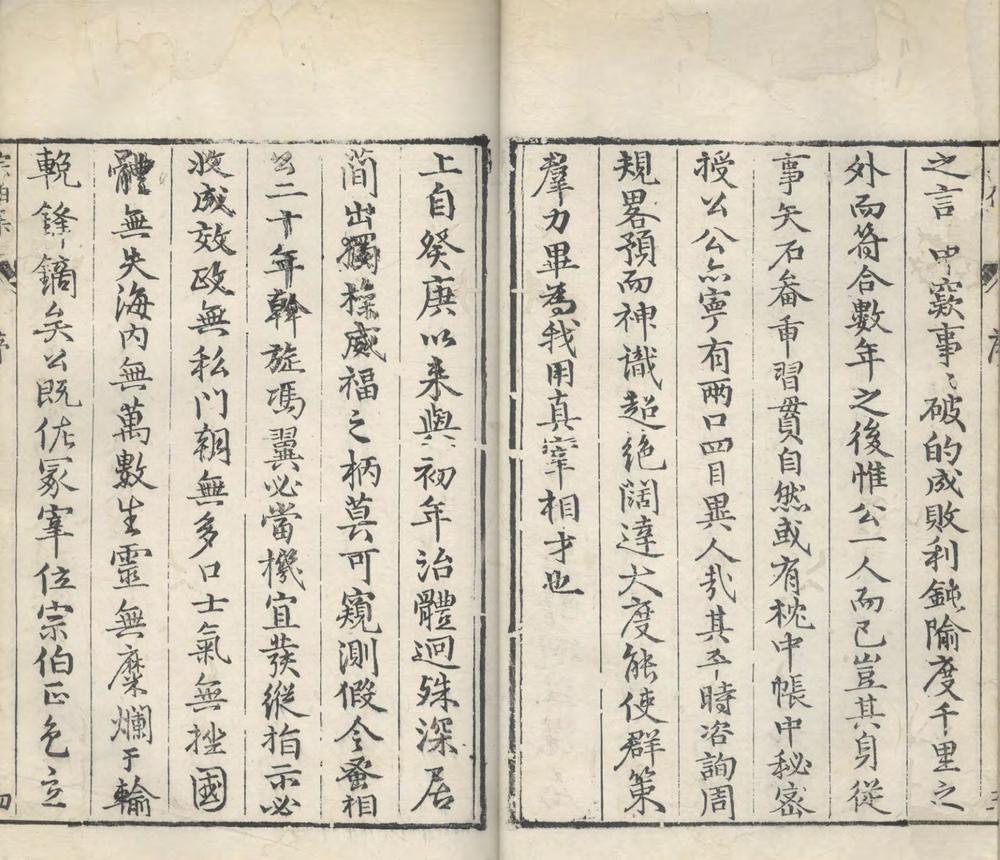 之言中窾事〻破的成敗利鈍隃度千里之
外而符合數年之後惟公一人而已豈其身從
事矢石畚重習貫自然或有枕中帳中秘密
授公公亦寧有兩口四目異人哉其平時咨詢周
規畧預而神識超絶闊達大度能使群策
羣力畢為我用真宰相才也
上自癸庚以来與初年治體迥殊深居
簡出獨操威福之柄莫可窺測假令蚤相
公二十年幹旋馮翼必當機宜發縱指示必
收成效政無私門朝無多口士氣無挫國
體無失海内無萬數生靈無糜爛于輪
輓鋒鏑矣公既佐冢宰位宗伯正色立
序
四